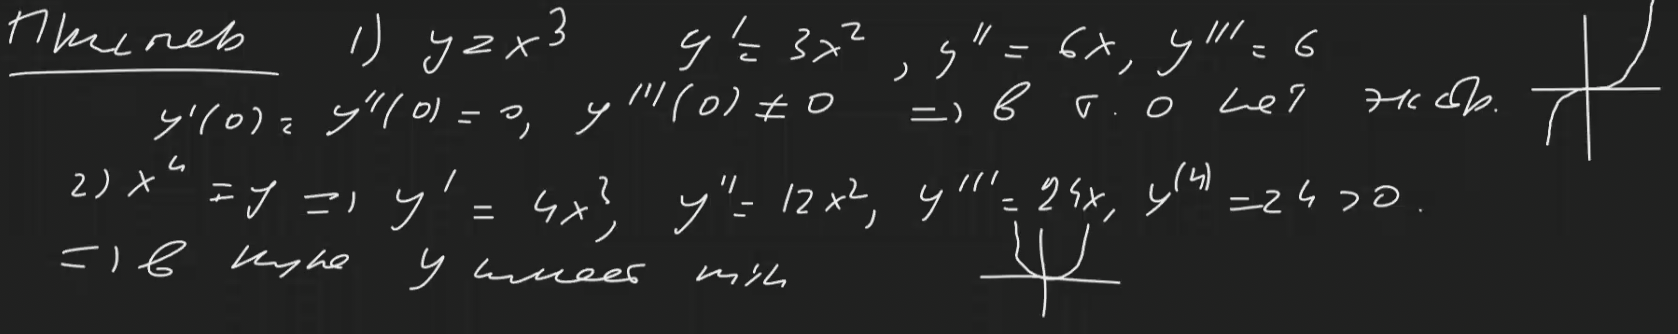 Пример 1) y = x³ y' = 3x², y'' = 6x, y''' = 6
y'(0) = y''(0) = 0, y'''(0) ≠ 0 => в т. 0 нет экстр.
2) x⁴ = y => y' = 4x³, y'' = 12x², y''' = 24x, y⁽⁴⁾ = 24 > 0.
=> в нуле y имеет min